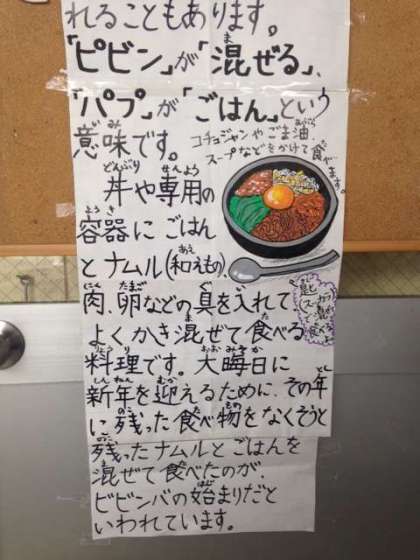 れることもあります。
「ピビン」が「混ぜる」、
「パプ」が「ごはん」という
意味です。
コチョジャンやごま油、
スープなどをかけて食べ
ます。
丼や専用の
容器にごはん
とナムル(和えもの)
肉、卵などの具を入れて
よくかき混ぜて食べる
料理です。大晦日に
新年を迎えるために、その年
に残った食べ物をなくそうと
残ったナムルとごはんを
混ぜて食べたのが、
ビビンバの始まりだと
いわれています。